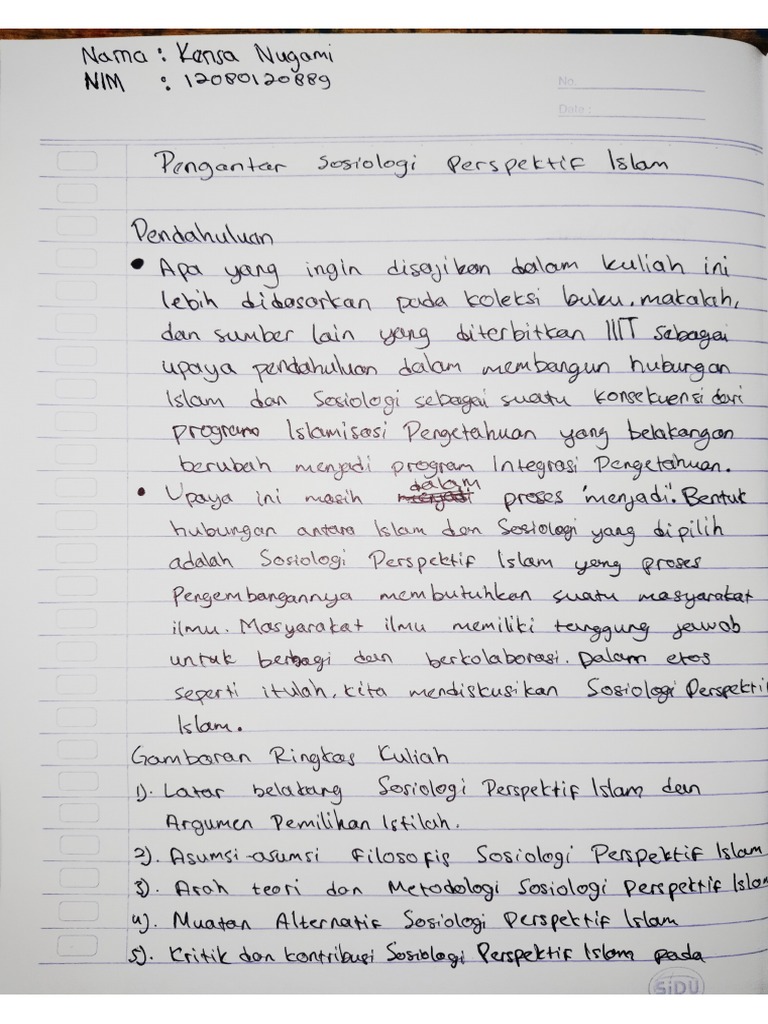 Nama : Kensa Nugami
NIM : 12080120889
No.
Date :
Pengantar Sosiologi Perspektif Islam
Pendahuluan
• Apa yang ingin disajikan dalam kuliah ini
lebih didasarkan pada koleksi buku, makalah,
dan sumber lain yang diterbitkan IIIT sebagai
upaya pendahuluan dalam membangun hubungan
Islam dan Sosiologi sebagai suatu konsekuensi dari
program Islamisasi Pengetahuan yang belakangan
berubah menjadi program Integrasi Pengetahuan.
• Upaya ini masih dalam proses "menjadi". Bentuk
hubungan antara Islam dan Sosiologi yang dipilih
adalah Sosiologi Perspektif Islam yang proses
Pengembangannya membutuhkan suatu masyarakat
ilmu. Masyarakat ilmu memiliki tanggung jawab
untuk berbagi dan berkolaborasi. Dalam etos
seperti itulah, kita mendiskusikan Sosiologi Perspektif
Islam.
Gambaran Ringkas Kuliah
1). Latar belakang Sosiologi Perspektif Islam dan
Argumen Pemilihan Istilah.
2). Asumsi-asumsi Filosofis Sosiologi Perspektif Islam
3). Arah teori dan Metodologi Sosiologi Perspektif Islam
4). Muatan Alternatif Sosiologi Perspektif Islam
5). Kritik dan kontribusi Sosiologi Perspektif Islam pada
SiDU